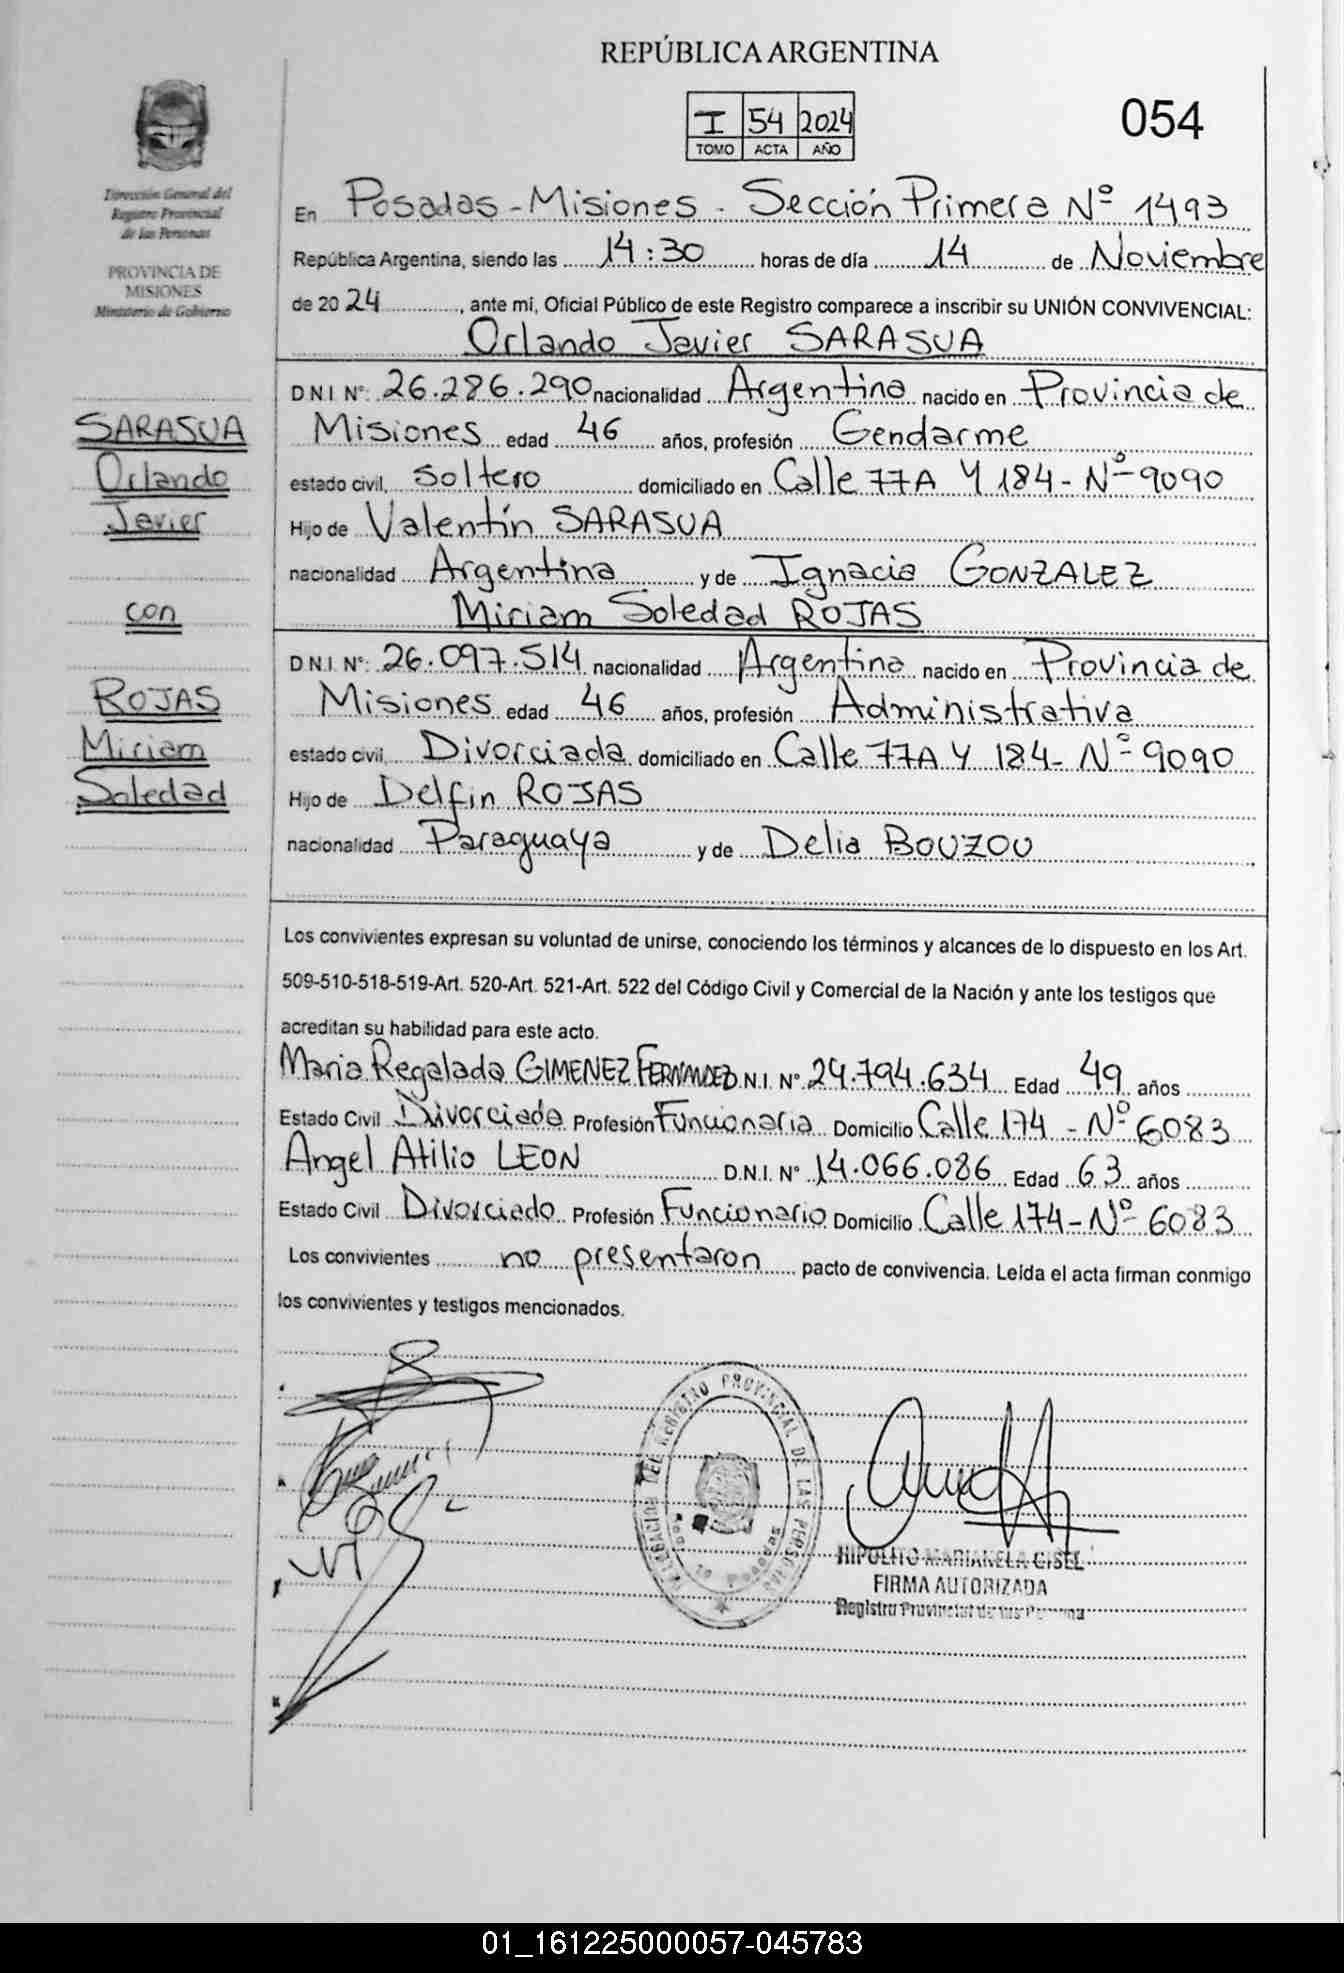 REPÚBLICA ARGENTINA
I 54 2024
TOMO ACTA AÑO
054
Dirección General del
Registro Provincial
de las Personas
PROVINCIA DE
MISIONES
Ministerio de Gobierno
En Posadas - Misiones - Sección Primera Nº 1493
República Argentina, siendo las 14:30 horas de día 14 de Noviembre
de 2024, ante mi, Oficial Público de este Registro comparece a inscribir su UNIÓN CONVIVENCIAL:
Orlando Javier SARASUA
D.N.I. Nº: 26.286.290 nacionalidad Argentina nacido en Provincia de
Misiones edad 46 años, profesión Gendarme
estado civil, Soltero domiciliado en Calle 77A Y 184 - Nº 9090
Hijo de Valentín SARASUA
nacionalidad Argentina y de Ignacia GONZALEZ
Miriam Soledad ROJAS
D.N.I. Nº: 26.097.514 nacionalidad Argentina nacido en Provincia de
Misiones edad 46 años, profesión Administrativa
estado civil, Divorciada domiciliado en Calle 77A Y 184 - Nº 9090
Hijo de Delfin ROJAS
nacionalidad Paraguaya y de Delia BOUZOU
SARASUA
Orlando
Javier
con
ROJAS
Miriam
Soledad
Los convivientes expresan su voluntad de unirse, conociendo los términos y alcances de lo dispuesto en los Art.
509-510-518-519-Art. 520-Art. 521-Art. 522 del Código Civil y Comercial de la Nación y ante los testigos que
acreditan su habilidad para este acto.
Maria Regalada GIMENEZ FERNANDEZ D.N.I. Nº 24.794.634 Edad 49 años
Estado Civil Divorciada Profesión Funcionaria Domicilio Calle 174 - Nº 6083
Angel Atilio LEON D.N.I. Nº 14.066.086 Edad 63 años
Estado Civil Divorciado Profesión Funcionario Domicilio Calle 174 - Nº 6083
Los convivientes no presentaron pacto de convivencia. Leída el acta firman conmigo
los convivientes y testigos mencionados.
REGISTRO PROVINCIAL DE LAS PERSONAS
Posadas
HIPOLITO MARIANELA GISEL
FIRMA AUTORIZADA
Registro Provincial de las Personas
01_161225000057-045783